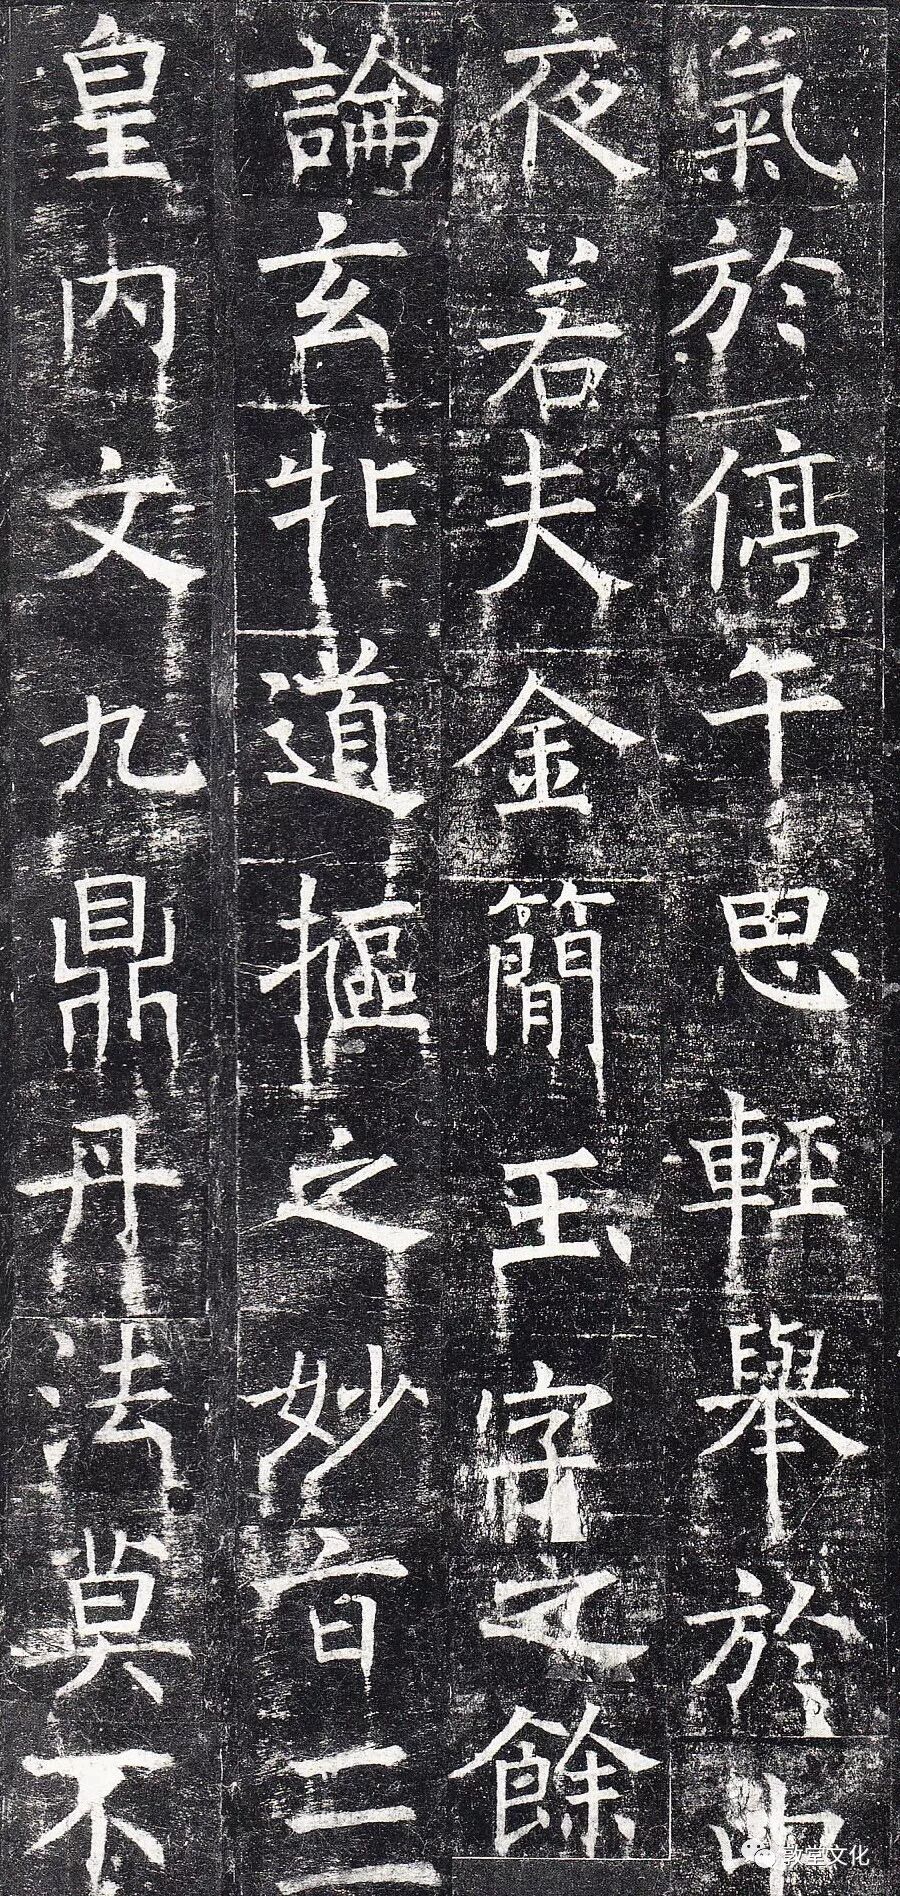 氣於停午思輕舉於中
夜若夫金簡玉字之餘
論玄牝道摳之妙旨三
皇内文九鼎丹法莫不
敦堂文化